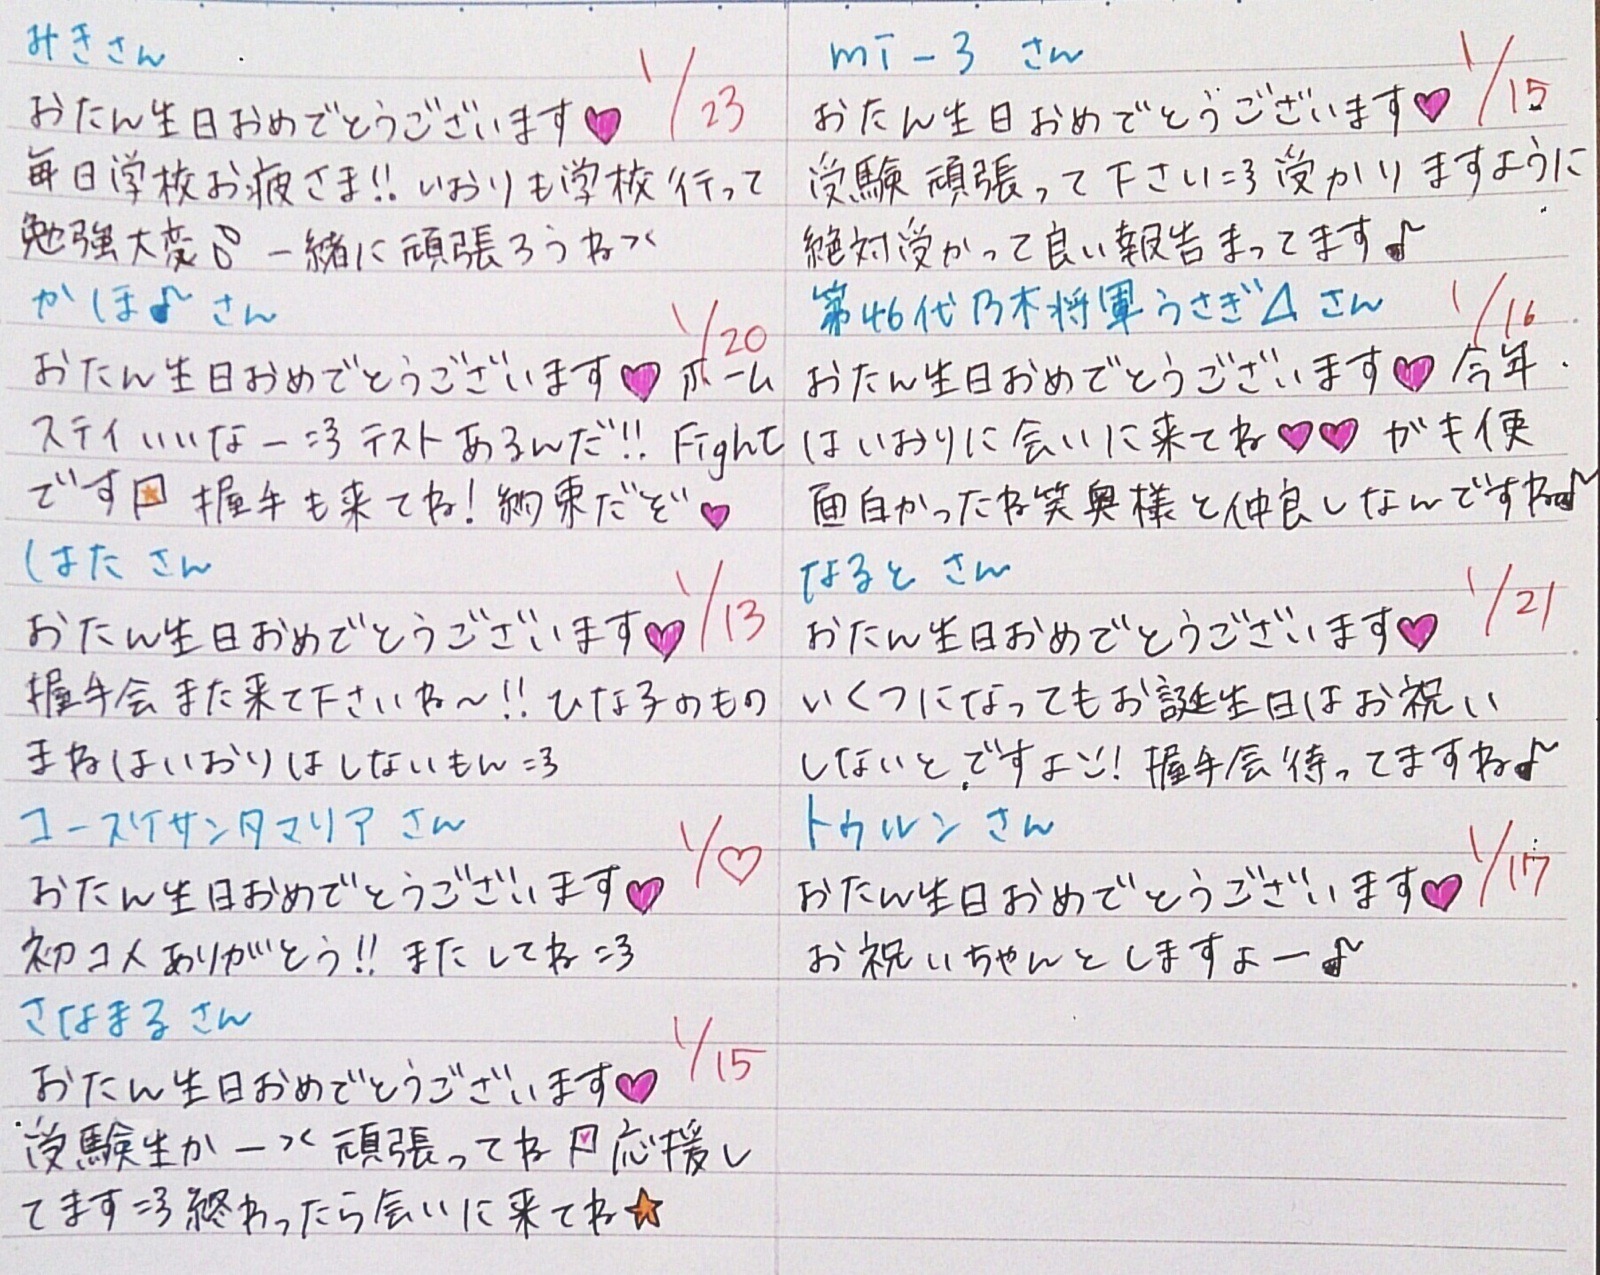 みきさん 1/23
おたん生日おめでとうございます♥
毎日学校お疲さま!! いおりも学校行って
勉強大変 一緒に頑張ろうねつく
かほ♪さん 1/20
おたん生日おめでとうございます♥ ホーム
ステイいいなー=3 テストあるんだ!! Fight
です 握手も来てね! 約束だぞ♥
しはた さん 1/13
おたん生日おめでとうございます♥
握手会また来て下さいね〜!! ひな子のもの
まねはいおりはしないもん=3
コーズケサンタマリア さん 1/♡
おたん生日おめでとうございます♥
初コメありがとう!! またしてね=3
さなまるさん 1/15
おたん生日おめでとうございます♥
受験生かーつく 頑張ってね 応援し
てます=3 終わったら会いに来てね★
mi-3 さん 1/15
おたん生日おめでとうございます♥
受験 頑張って下さい=3 受かりますように
絶対受かって良い報告まってます♪
第46代乃木将軍うさぎΔさん 1/16
おたん生日おめでとうございます♥ 今年
はいおりに会いに来てね♥♥ がも使
面白かったね笑 奥様と仲良しなんですね♪
なると さん 1/21
おたん生日おめでとうございます♥
いくつになってもお誕生日はお祝い
しないと、ですよ! 握手会待ってますね♪
トゥルン さん 1/17
おたん生日おめでとうございます♥
お祝いちゃんとしますよー♪